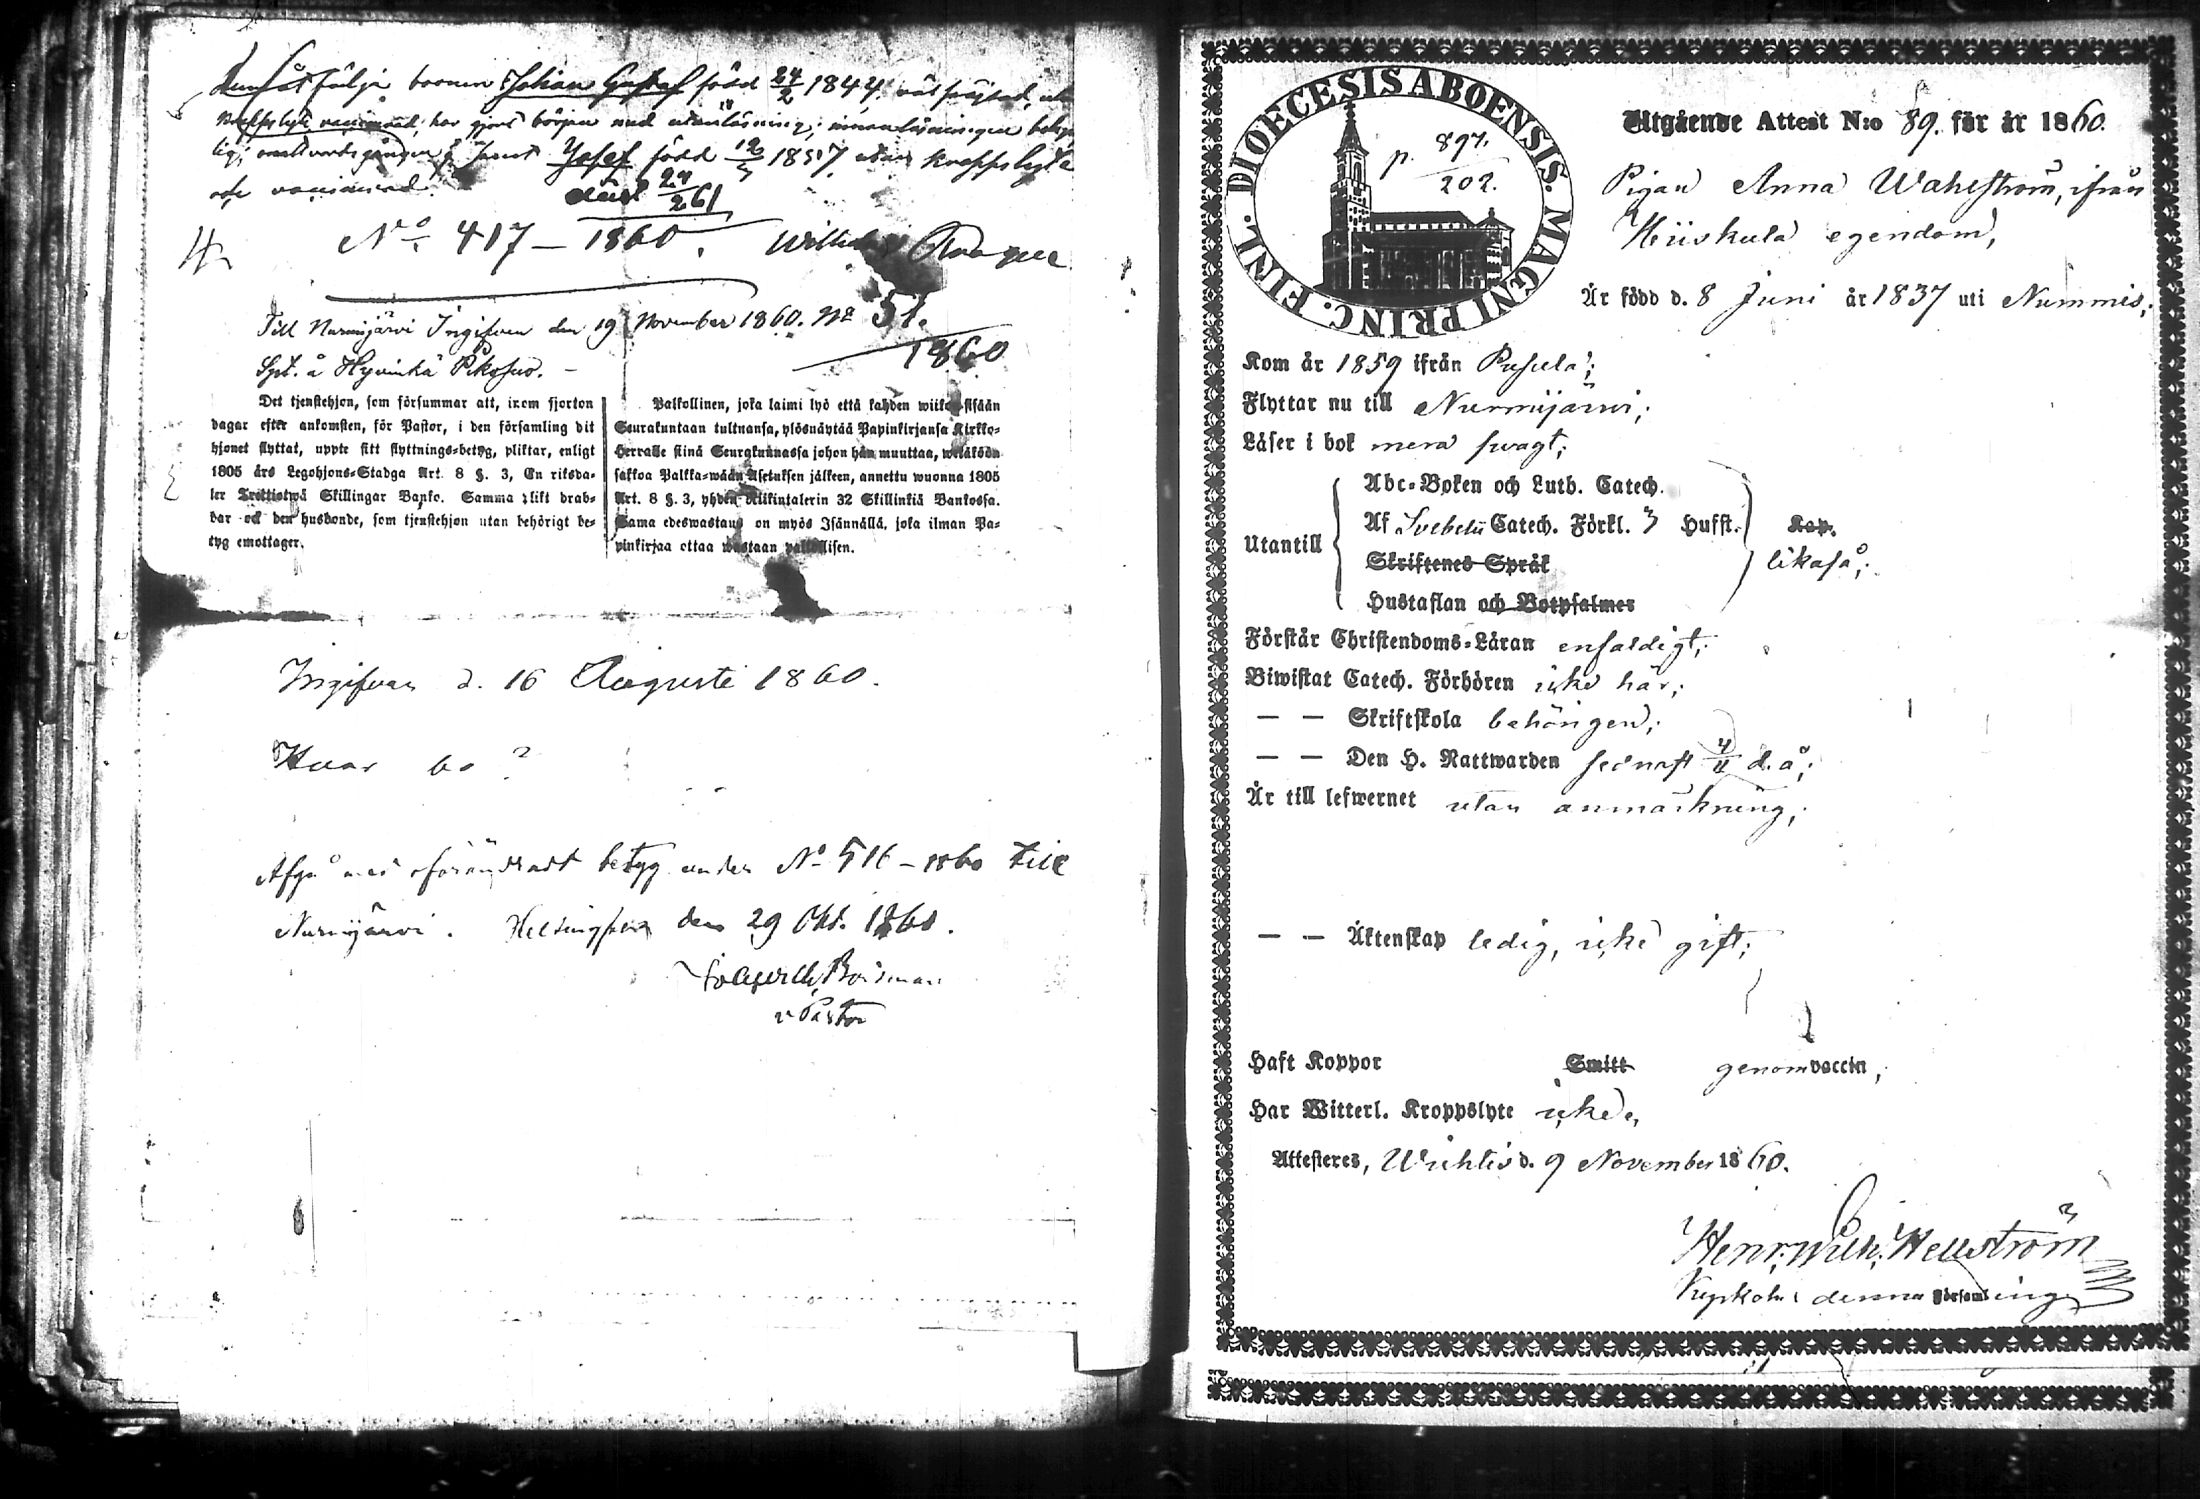 följa barnen Johan Gustaf född 24/2 1844, 
har gjort början med innanläsning;
samt Josef född 12/3 1857, utan kroppslyte
och vaccinerad.
död 24/2 61
No 417 – 1860.
Till Nurmijärvi Ingifven den 19 November 1860. No 51.
1860
Spt. å Hyvinkä
Det tjenstehjon, som försummar att, inom fjorton
dagar efter ankomsten, för Pastor, i den församling dit
hjonet flyttat, uppte sitt flyttnings-betyg, pliktar, enligt
1805 års Legohjons-Stadga Art. 8 §. 3, En riksda-
ler Trettiotwå Skillingar Banko. Samma plikt drab-
bar ock den husbonde, som tjenstehjon utan behörigt be-
tyg emottager.
Palkollinen, joka laimi lyö että kahden wiikon sisään
Seurakuntaan tultuansa, ylösnäytää Papinkirjansa Kirkko-
Herralle siinä Seurakunnassa johon hän muuttaa, wetäköön
sakkoa Palkka-wään Asetuksen jälkeen, annettu wuonna 1805
Art. 8 §. 3, yhden Riikintalerin 32 Skillinkiä Bankossa.
Sama edeswastaus on myös Isännällä, joka ilman Pa-
pinkirjaa ottaa wastaan palkollisen.
Ingifven d. 16 Augusti 1860.
Hvar bo?
Afgår med oförändradt betyg under No 516 – 1860 till
Nurmijärvi. Helsingfors den 29 Okt. 1860.
v. Pastor
DIOECESIS ABOENSIS. MAGNI PRINC. FINL.
p. 897/202.
Utgående Attest N:o 89. för år 1860.
Pigan Anna Wahlström, ifrån
Hiiskula egendom,
Är född d. 8 Juni år 1837 uti Nummis;
Kom år 1859 ifrån Pusula;
Flyttar nu till Nurmijärwi;
Läser i bok mera swagt;
Abc-Boken och Luth. Catech.
Af Svebelii Catech. Förkl. 3 Hufst. Kap.
Utantill
Skriftenes Språk
likaså;
Hustaflan och Botpsalmer
Förstår Christendoms-Läran enfaldigt;
Biwistat Catech. Förhören icke här;
— — Skriftskola behörigen;
— — Den H. Nattwarden sednast 4/11 d.å;
Är till lefwernet utan anmärkning;
— — Äktenskap ledig, icke gift;
Haft Koppor Smitt genom vaccin;
Har Witterl. Kroppslyte icke,
Attesteres, Wichtis d. 9 November 1860.
Henr. Wilh. Hellström
Kyrkoh. i denna Församling